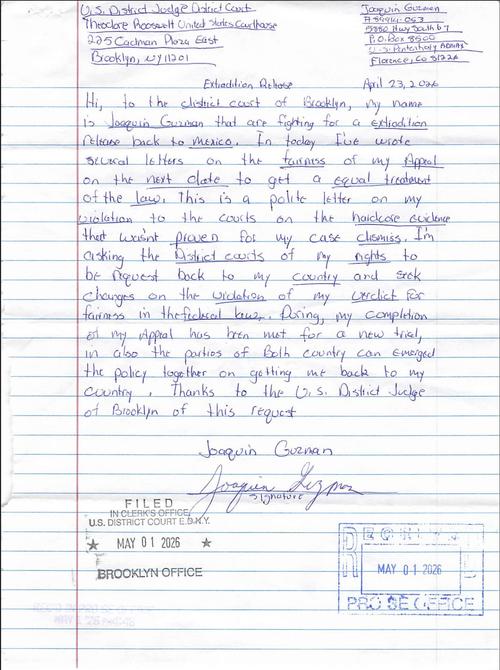 U.S. District Judge District Court
Theodore Roosevelt United States Courthouse
225 Cadman Plaza East
Brooklyn, NY 11201
Joaquin Guzman
5880 Hwy South 67
P.O. Box 8500
Florence, Co 81226
Extradition Release
April 23, 2026
Hi, to the district court of Brooklyn, my name
is Joaquin Guzman that are fighting for a extradition
release back to mexico. In today I've wrote
several letters on the fairness of my Appeal
on the next date to get a equal treatment
of the law. This is a polite letter on my
violation to the courts on the hardcore evidence
that wasn't proven for my case dismiss. I'm
asking the District courts of my rights to
be request back to my country and seek
changes on the violation of my verdict for
fairness in the federal law. During, my completion
of my Appeal has been met for a new trial,
in also the parties of Both country can emerged
the policy together on getting me back to my
country. Thanks to the U.S. District Judge
of Brooklyn of this request
Joaquin Guzman
Joaquin Guzman
Signature
FILED
IN CLERK'S OFFICE
U.S. DISTRICT COURT E.D.N.Y.
★ MAY 01 2026 ★
BROOKLYN OFFICE
MAY 01 2026
PRO SE OFFICE